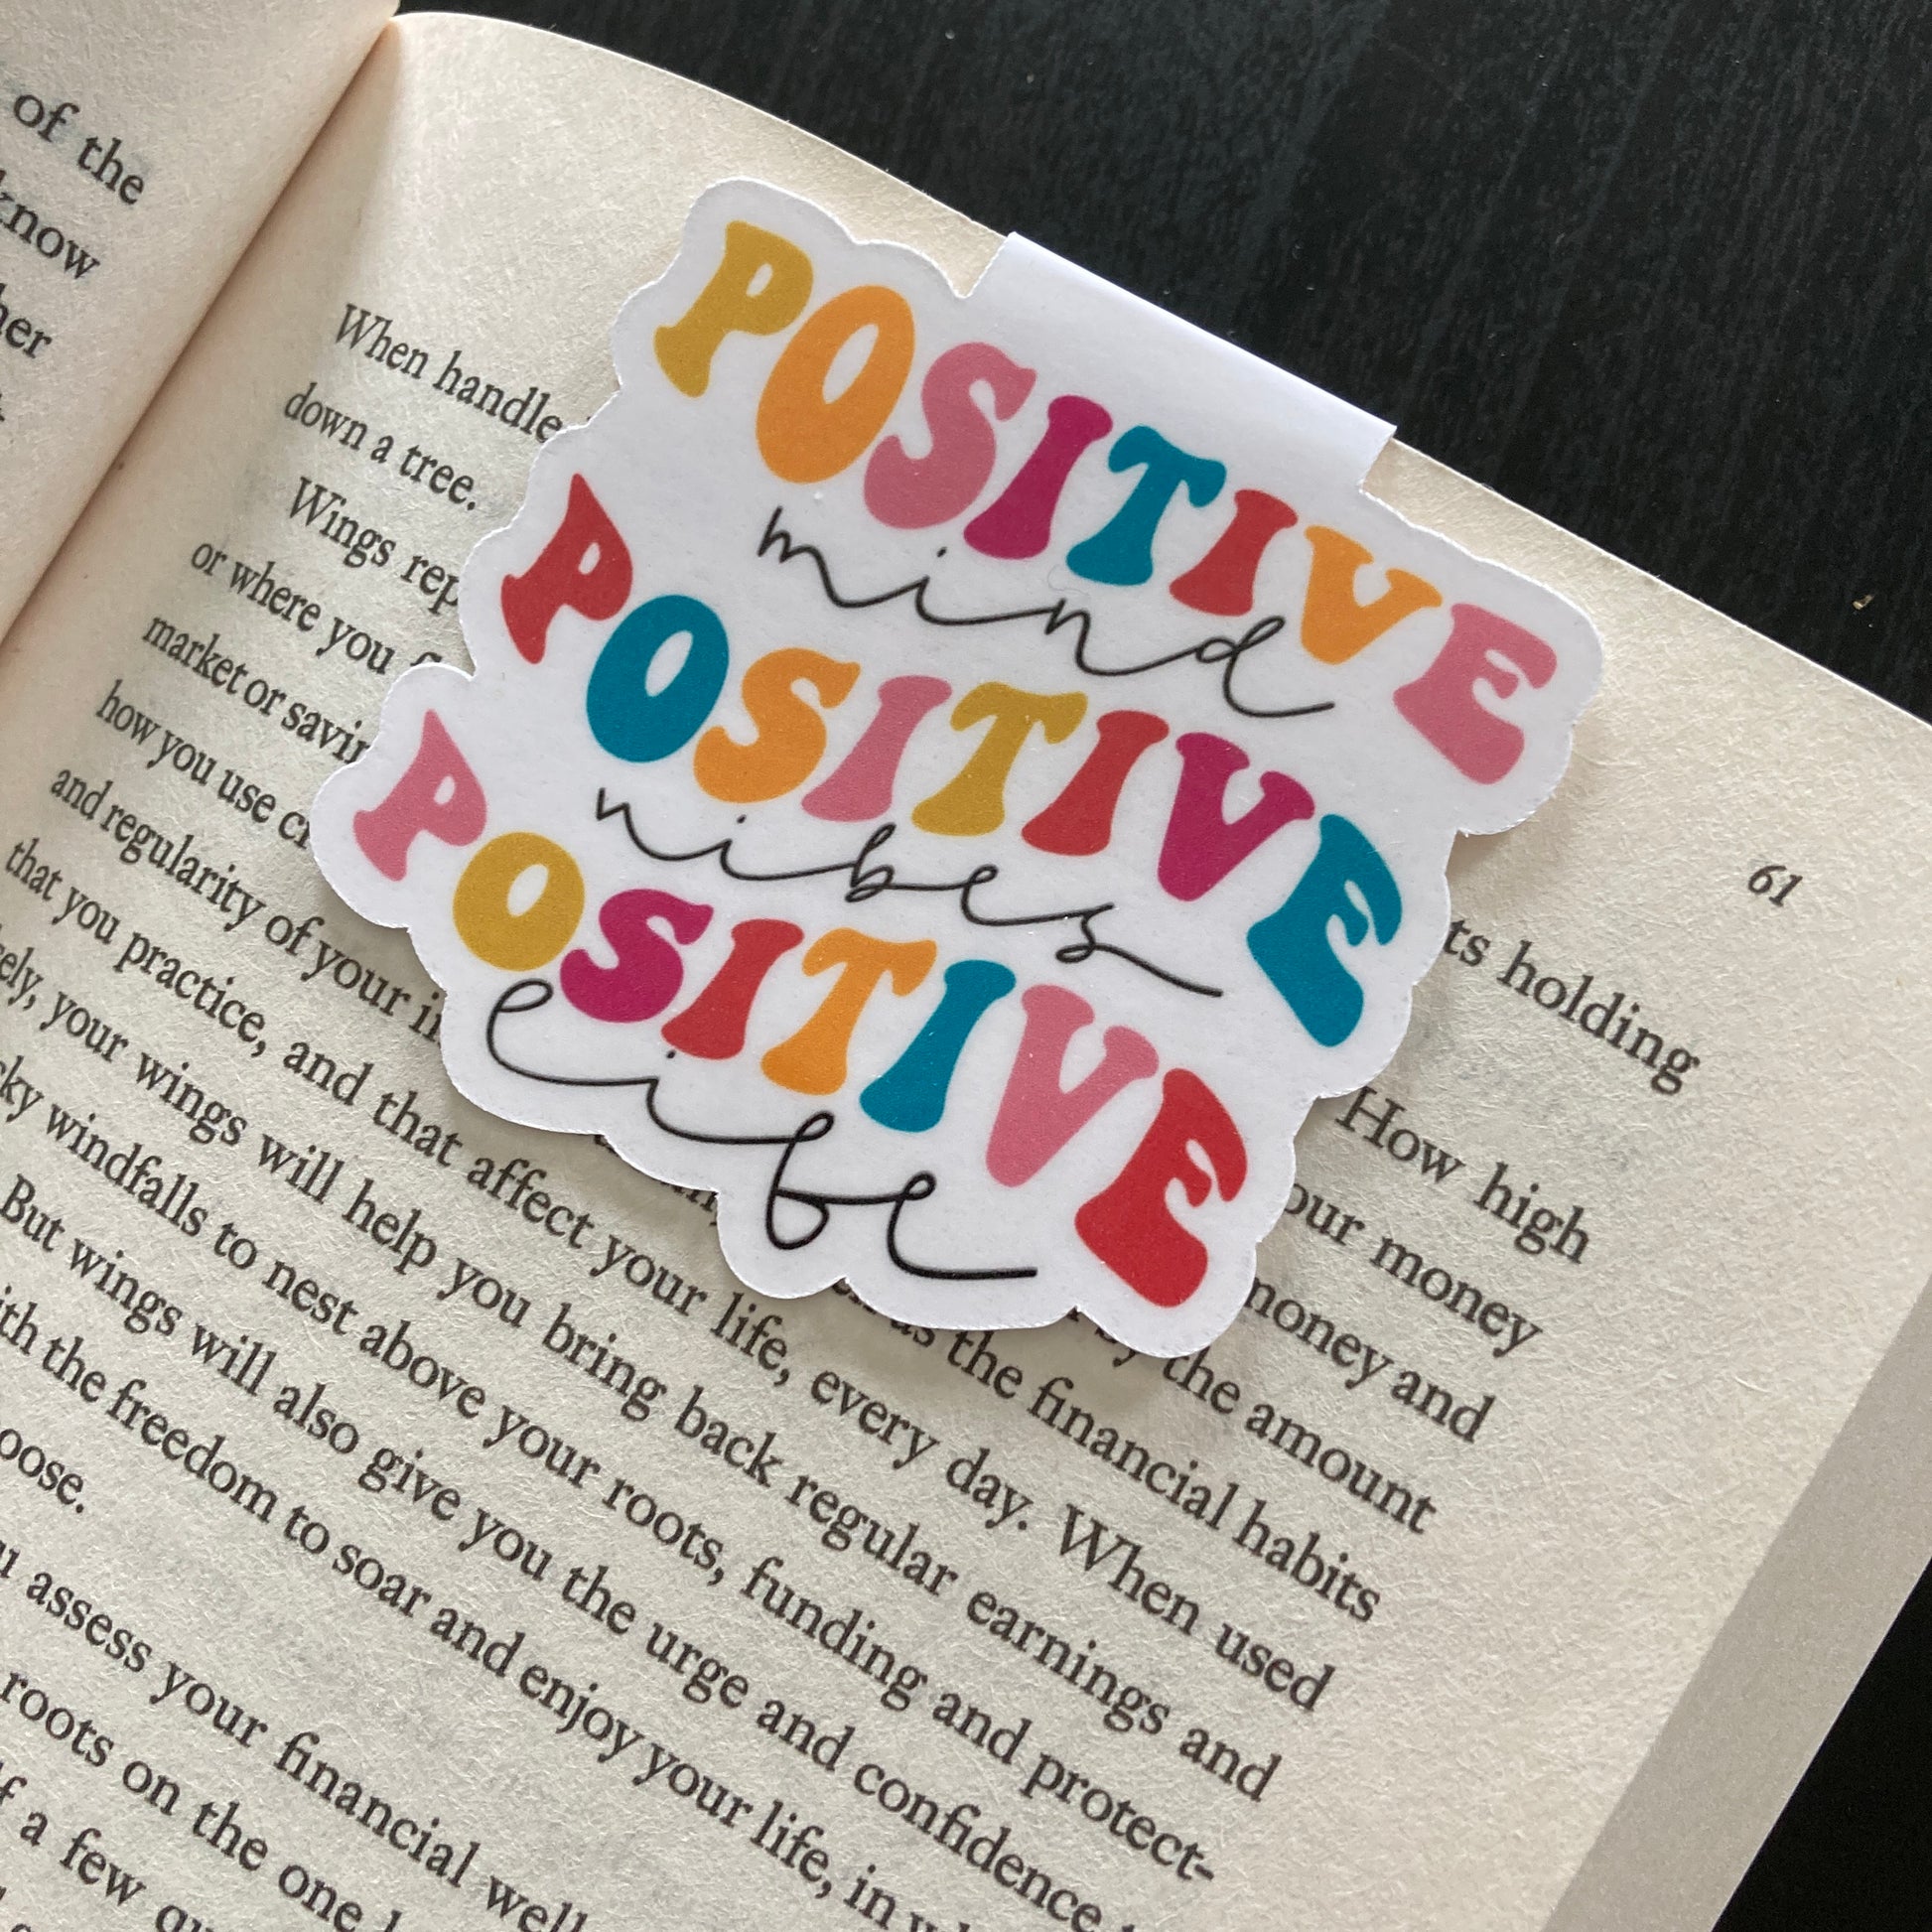 of the
know
her
61
POSITIVE
mind
POSITIVE
vibes
POSITIVE
life
When handle ts holding
down a tree.
Wings rep How high
or where you our money
market or savin money and
how you use by the amount
and regularity of your in as the financial habits
that you practice, and that affect your life, every day. When used
ely, your wings will help you bring back regular earnings and
ky windfalls to nest above your roots, funding and protect-
But wings will also give you the urge and confidence
ith the freedom to soar and enjoy your life, in
oose.
u assess your financial well
roots on the one
f a few